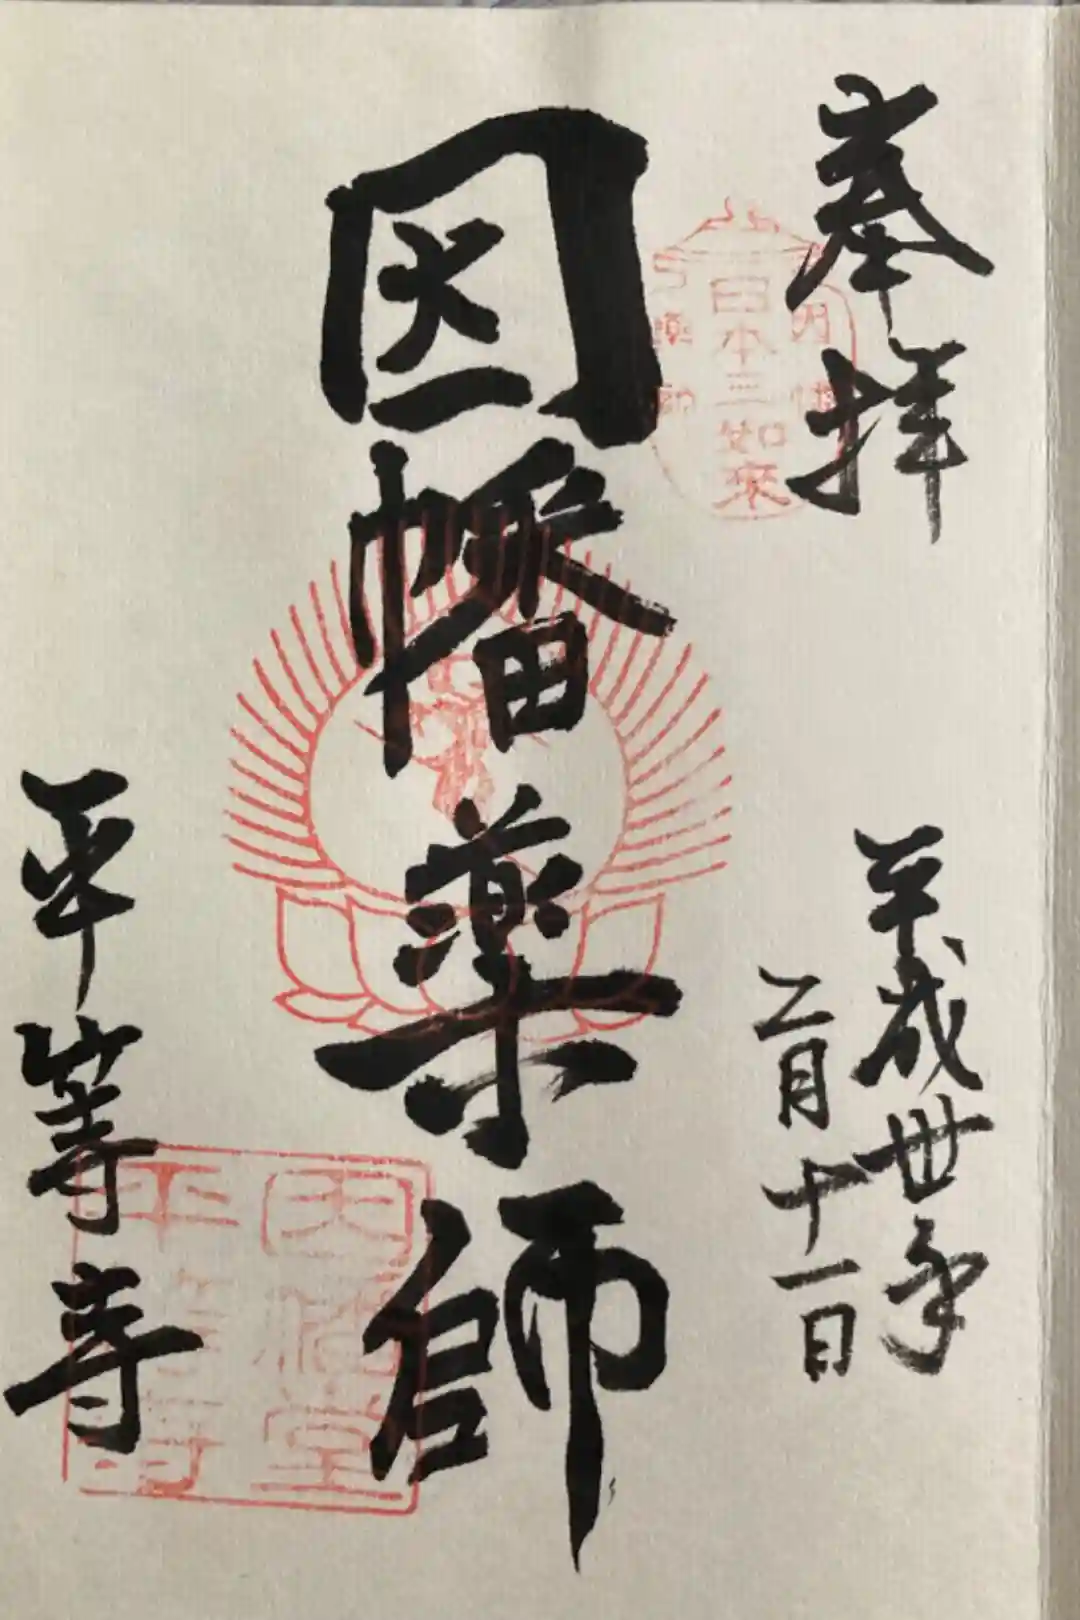 奉拝
日本三如来
因幡
薬師
平成卅年
二月十一日
因幡薬師
因幡堂
平等寺
平等寺